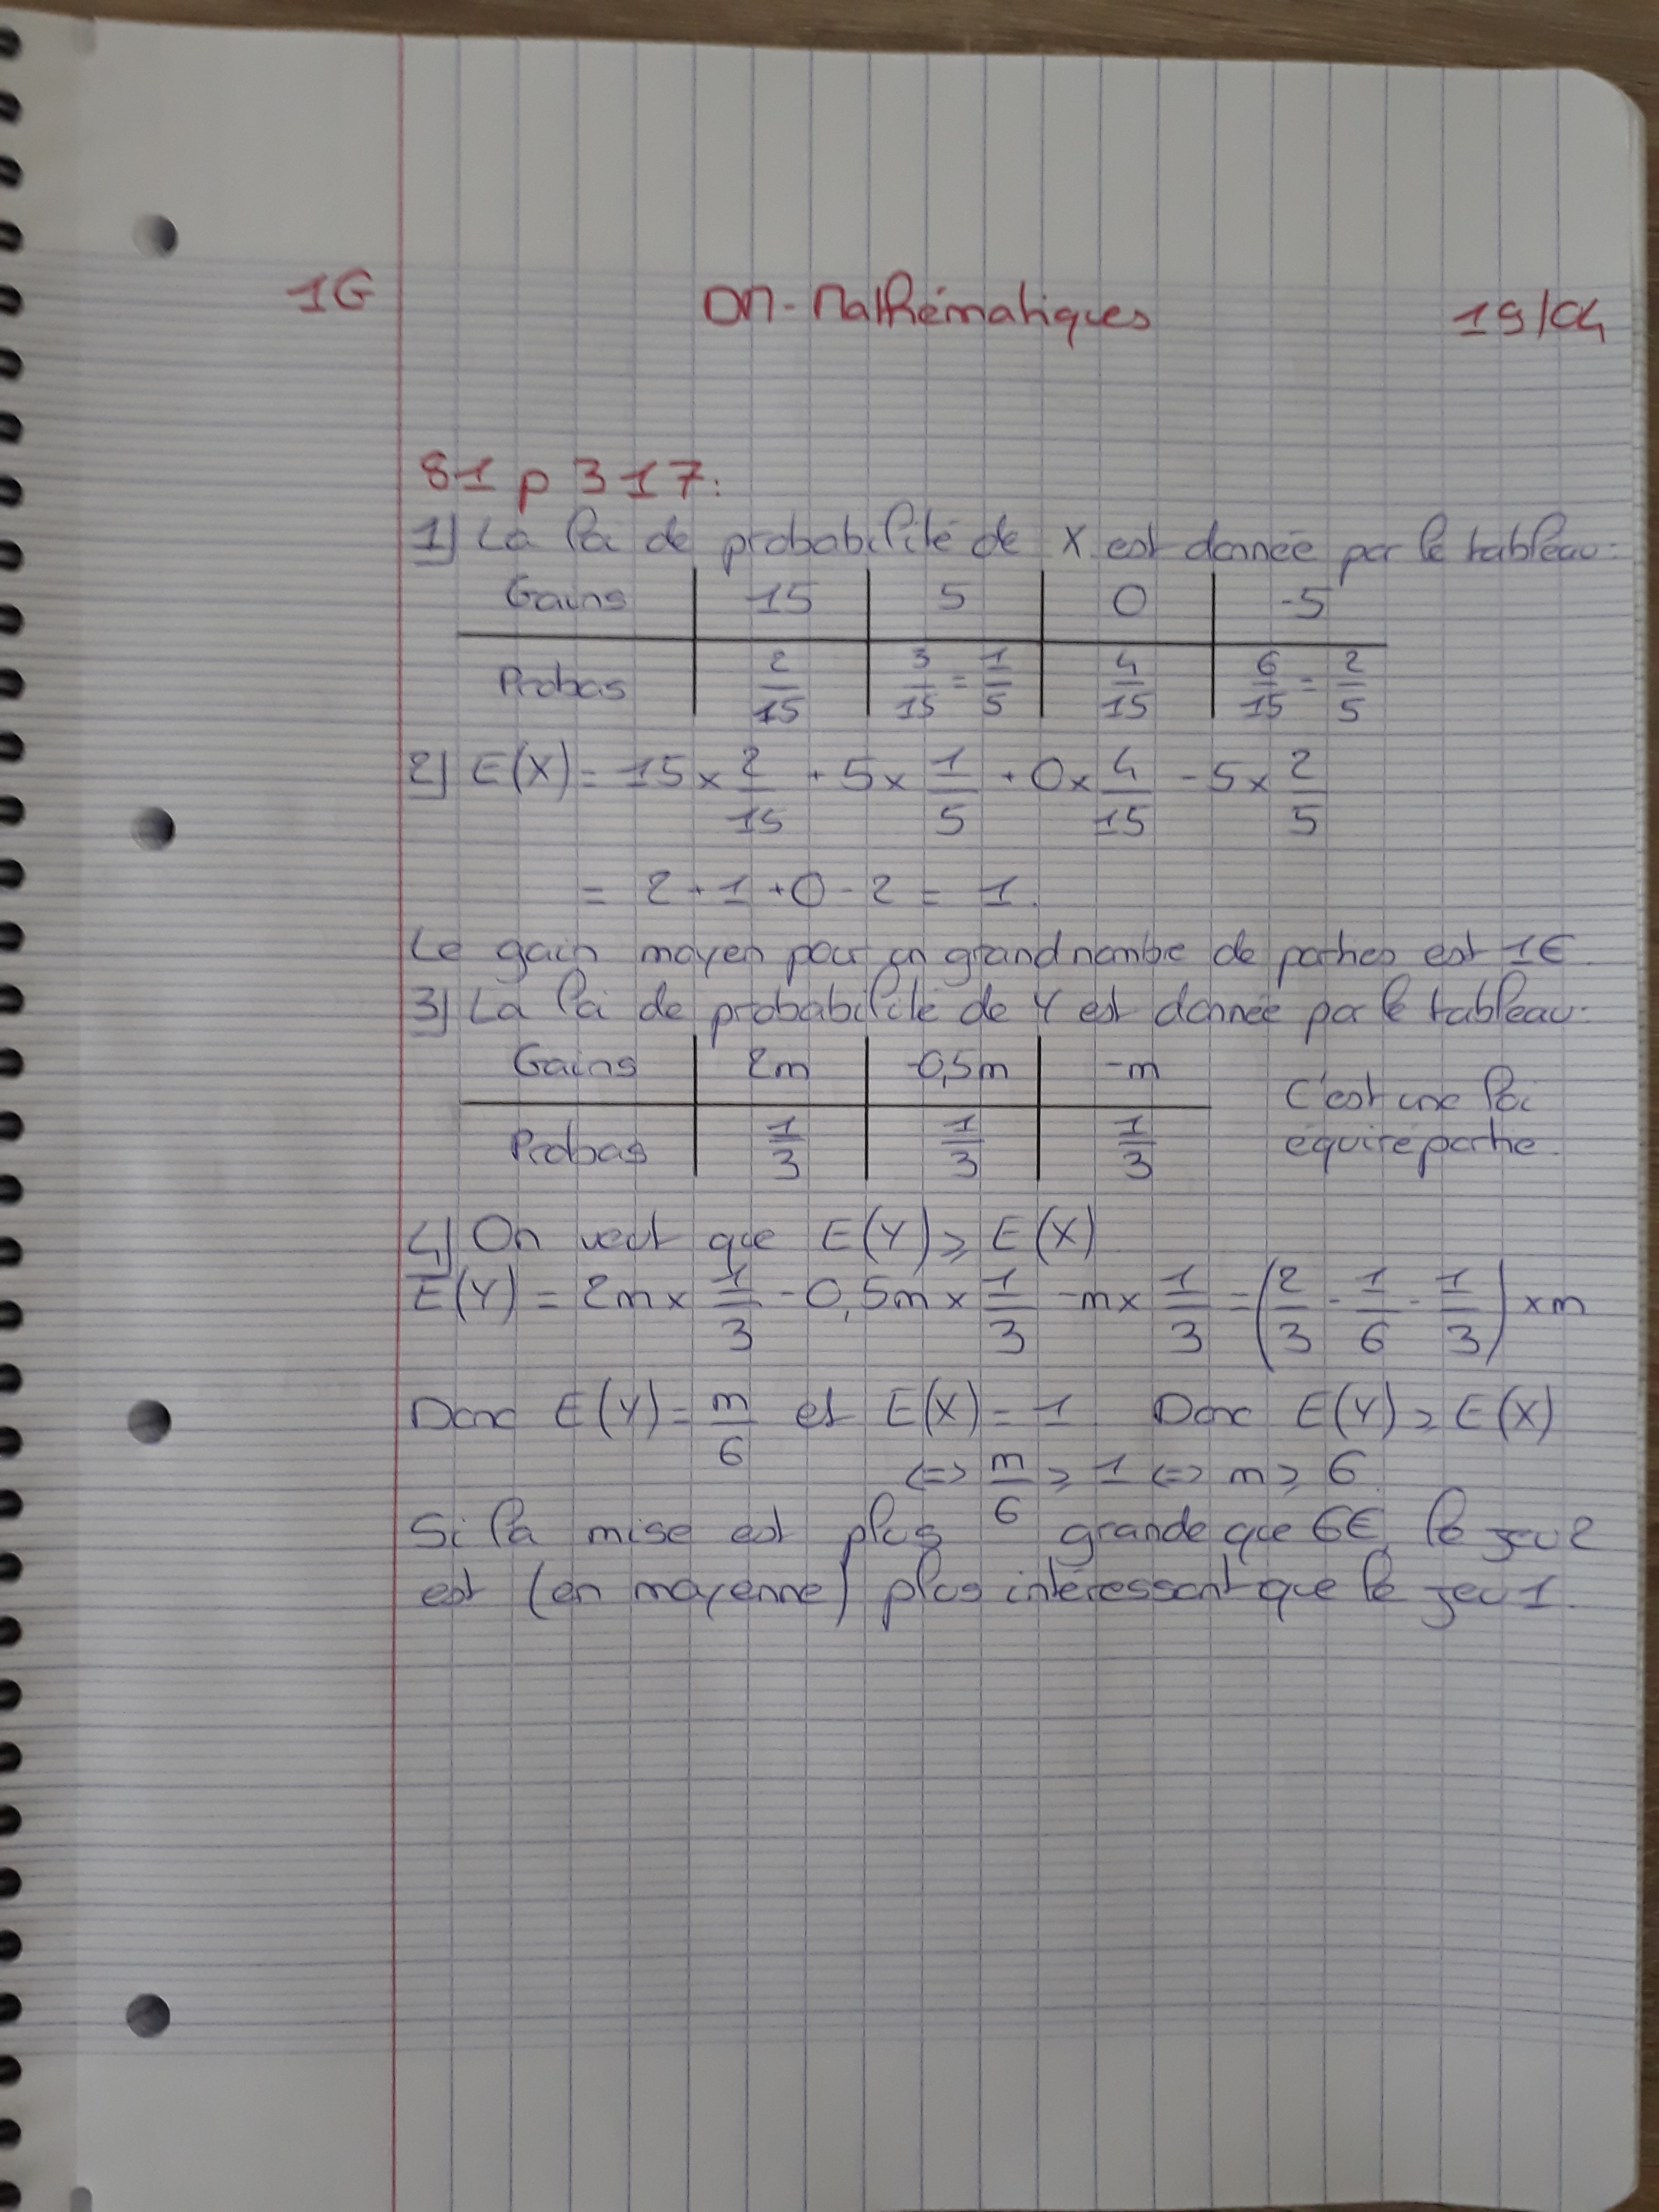 1G DM - Mathématiques 19/04
81 p 317:
1) La loi de probabilité de X est donnée par le tableau:
Gains | 15 | 5 | 0 | -5
Probas | 2/15 | 3/15 = 1/5 | 4/15 | 6/15 = 2/5
2) E(X) = 15 × 2/15 + 5 × 1/5 + 0 × 4/15 - 5 × 2/5
= 2 + 1 + 0 - 2 = 1.
Le gain moyen pour un grand nombre de parties est 1€.
3) La loi de probabilité de Y est donnée par le tableau:
Gains | 2m | -0,5m | -m
Probas | 1/3 | 1/3 | 1/3
C'est une loi
équirépartie.
4) On veut que E(Y) ⩾ E(X)
E(Y) = 2m × 1/3 - 0,5m × 1/3 - m × 1/3 = (2/3 - 1/6 - 1/3) × m
Donc E(Y) = m/6 et E(X) = 1 Donc E(Y) ⩾ E(X)
<=> m/6 ⩾ 1 <=> m ⩾ 6
Si la mise est plus grande que 6€, le jeu 2
est (en moyenne) plus intéressant que le jeu 1.